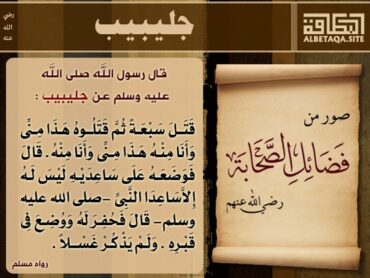 جليبيب
رضي
الله
عنه
البطاقة
ALBETAQA.SITE
قال رسول الله صلى الله
عليه وسلم عن جليبيب :
قَتَلَ سَبْعَةً ثُمَّ قَتَلُوهُ هَذَا مِنِّي
وَأَنَا مِنْهُ هَذَا مِنِّي وَأَنَا مِنْهُ . قَالَ
فَوَضَعَهُ عَلَى سَاعِدَيْهِ لَيْسَ لَهُ
إِلاَّ سَاعِدَا النَّبِيِّ -صلى الله عليه
وسلم- قَالَ فَحُفِرَ لَهُ وَوُضِعَ فِي
قَبْرِهِ . وَلَمْ يَذْكُرْ غَسْلاً .
رواه مسلم
صور من
فضائل الصحابة
رضي الله عنهم